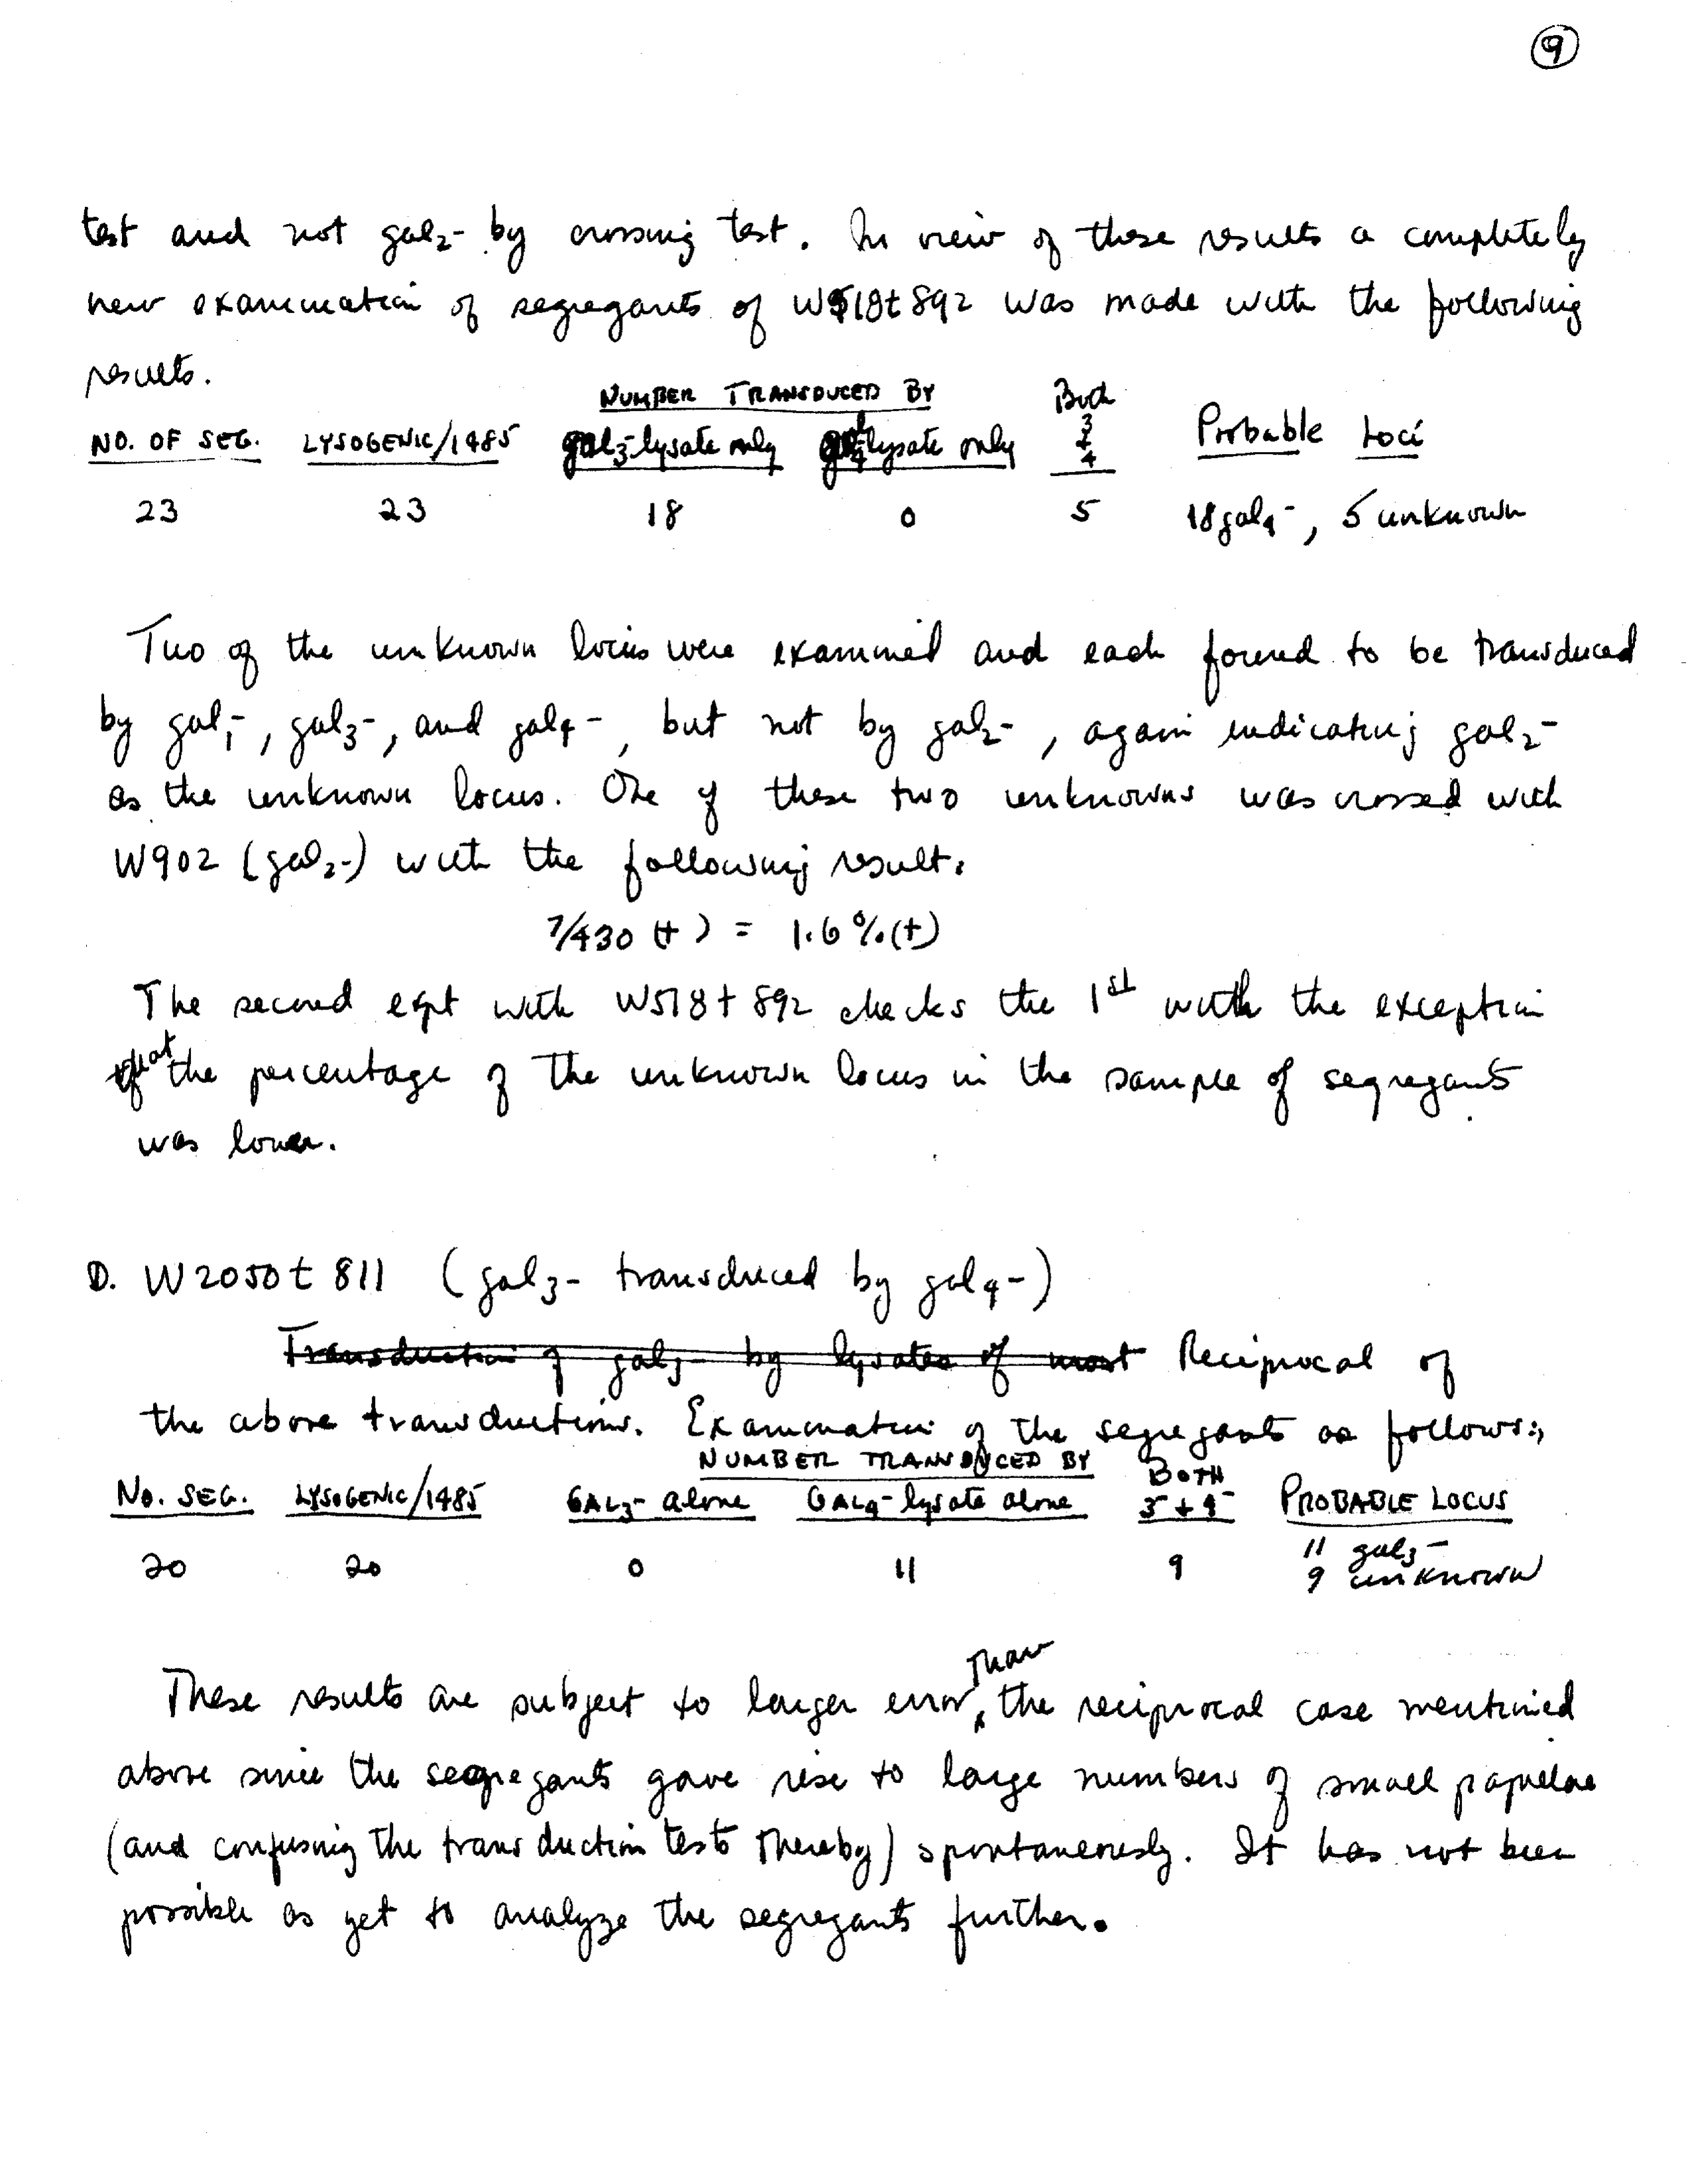 9
test and not gal2- by crossing test. In view of these results a completely
new examination of segregants of W518t892 was made with the following
results.
NUMBER TRANSDUCED BY Both
NO. OF SEG. LYSOGENIC/1485 gal3-lysate only gal4-lysate only 3 + 4 Probable Loci
23 23 18 0 5 18 gal4-, 5 unknown
Two of the unknown locus were examined and each found to be transduced
by gal1-, gal3-, and gal4-, but not by gal2-, again indicating gal2-
as the unknown locus. One of these two unknowns was crossed with
W902 (gal2-) with the following result:
7/430 (+) = 1.6%(+)
The second expt with W518t892 checks the 1st with the exception
that the percentage of the unknown locus in the sample of segregants
was lower.
D. W2050t811 (gal3- transduced by gal4-)
Transduction of gal3- by lysates of most Reciprocal of
the above transductions. Examination of the segregants as follows:
NUMBER TRANSDUCED BY BOTH
NO. SEG. LYSOGENIC/1485 GAL3- alone GAL4- lysate alone 3- + 4- PROBABLE LOCUS
20 20 0 11 9 11 gal3-
9 unknown
These results are subject to larger error than the reciprocal case mentioned
above since the segregants gave rise to large numbers of small papillae
(and confusing the transduction tests thereby) spontaneously. It has not been
possible as yet to analyze the segregants further.